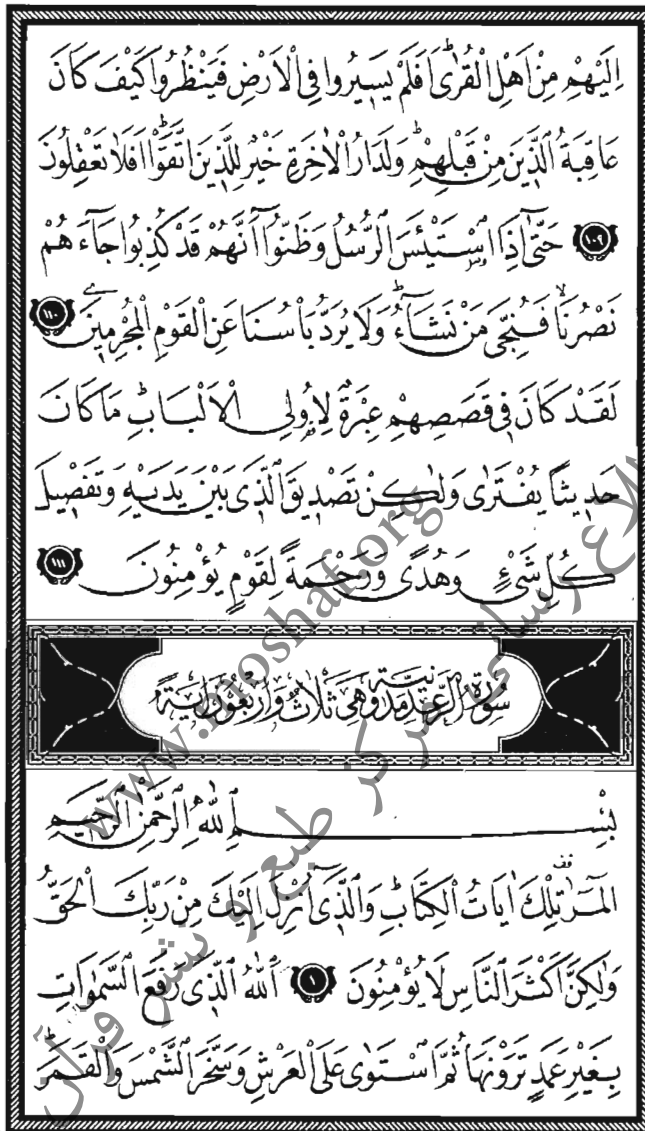 اِلَيْهِمْ مِنْ اَهْلِ الْقُرٰىۜ اَفَلَمْ يَس۪يرُوا فِي الْاَرْضِ فَيَنْظُرُوا كَيْفَ كَانَ
عَاقِبَةُ الَّذ۪ينَ مِنْ قَبْلِهِمْۜ وَلَدَارُ الْاٰخِرَةِ خَيْرٌ لِلَّذ۪ينَ اتَّقَوْاۜ اَفَلَا تَعْقِلُونَ
﴿١٠٩﴾ حَتّٰٓى اِذَا اسْتَيْـَٔسَ الرُّسُلُ وَظَنُّٓوا اَنَّهُمْ قَدْ كُذِبُوا جَٓاءَهُمْ
نَصْرُنَاۙ فَنُجِّيَ مَنْ نَشَٓاءُۜ وَلَا يُرَدُّ بَأْسُنَا عَنِ الْقَوْمِ الْمُجْرِم۪ينَ ﴿١١٠﴾
لَقَدْ كَانَ ف۪ي قَصَصِهِمْ عِبْرَةٌ لِاُو۬لِي الْاَلْبَابِۜ مَا كَانَ
حَد۪يثًا يُفْتَرٰى وَلٰكِنْ تَصْد۪يقَ الَّذ۪ي بَيْنَ يَدَيْهِ وَتَفْص۪يلَ
كُلِّ شَيْءٍ وَهُدًى وَرَحْمَةً لِقَوْمٍ يُؤْمِنُونَ ﴿١١١﴾
سُورَةُ الرَّعْدِ مَدَنِيَّةٌ وَهِيَ ثَلَاثٌ وَاَرْبَعُونَ اٰيَةً
بِسْمِ اللّٰهِ الرَّحْمٰنِ الرَّح۪يمِ
الٓمٓرٰ۠ تِلْكَ اٰيَاتُ الْكِتَابِۜ وَالَّذ۪ٓي اُنْزِلَ اِلَيْكَ مِنْ رَبِّكَ الْحَقُّ
وَلٰكِنَّ اَكْثَرَ النَّاسِ لَا يُؤْمِنُونَ ﴿١﴾ اَللّٰهُ الَّذ۪ي رَفَعَ السَّمٰوَاتِ
بِغَيْرِ عَمَدٍ تَرَوْنَهَا ثُمَّ اسْتَوٰى عَلَى الْعَرْشِ وَسَخَّرَ الشَّمْسَ وَالْقَمَرَۜ
www.moshaf.org
مرکز طبع و نشر قرآن